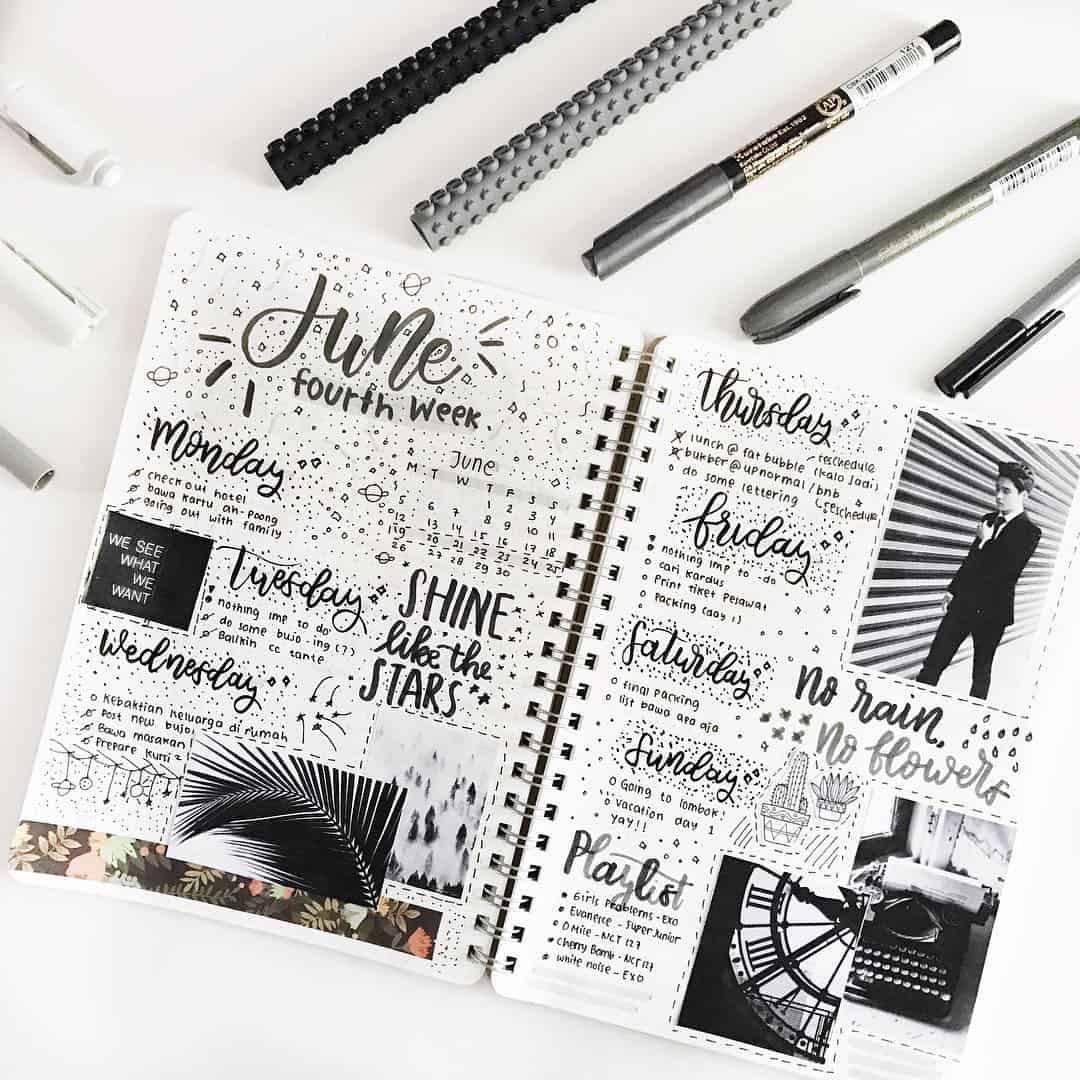 June
fourth week.
Monday
check out hotel
bawa kartu ah-poong
going out with family
June
M T W T F S S
1 2 3 4
5 6 7 8 9 10 11
12 13 14 15 16 17 18
19 20 21 22 23 24 25
26 27 28 29 30
WE SEE
WHAT
WE
WANT
Tuesday
nothing imp to do
do some bujo-ing (?)
Balikin cc tante
SHINE
like the
STARS
Wednesday
Kebaktian keluarga di rumah
Post new bujo!
Bawa masakan
Prepare kursi²
Thursday
lunch @ fat bubble reschedule
bukber @ upnormal/bnb (kalo jadi)
do some lettering reschedule
friday
nothing imp to-do
cari kardus
Print tiket pesawat
Packing (day 1)
Saturday
final packing
list bawa apa aja
no rain,
no flowers
Sunday
Going to lombok!
vacation day 1
yay!!
Playlist
Girls Problems - EXO
Evanesce - Super Junior
0 Mile - NCT 127
Cherry Bomb - NCT 127
white noise - EXO
Kuretake Est.1902
127